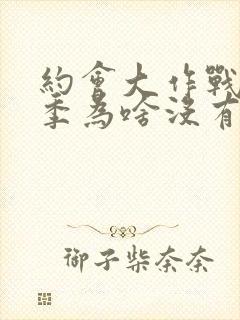 約會大作戰
季為啥沒有
御子柴奈奈